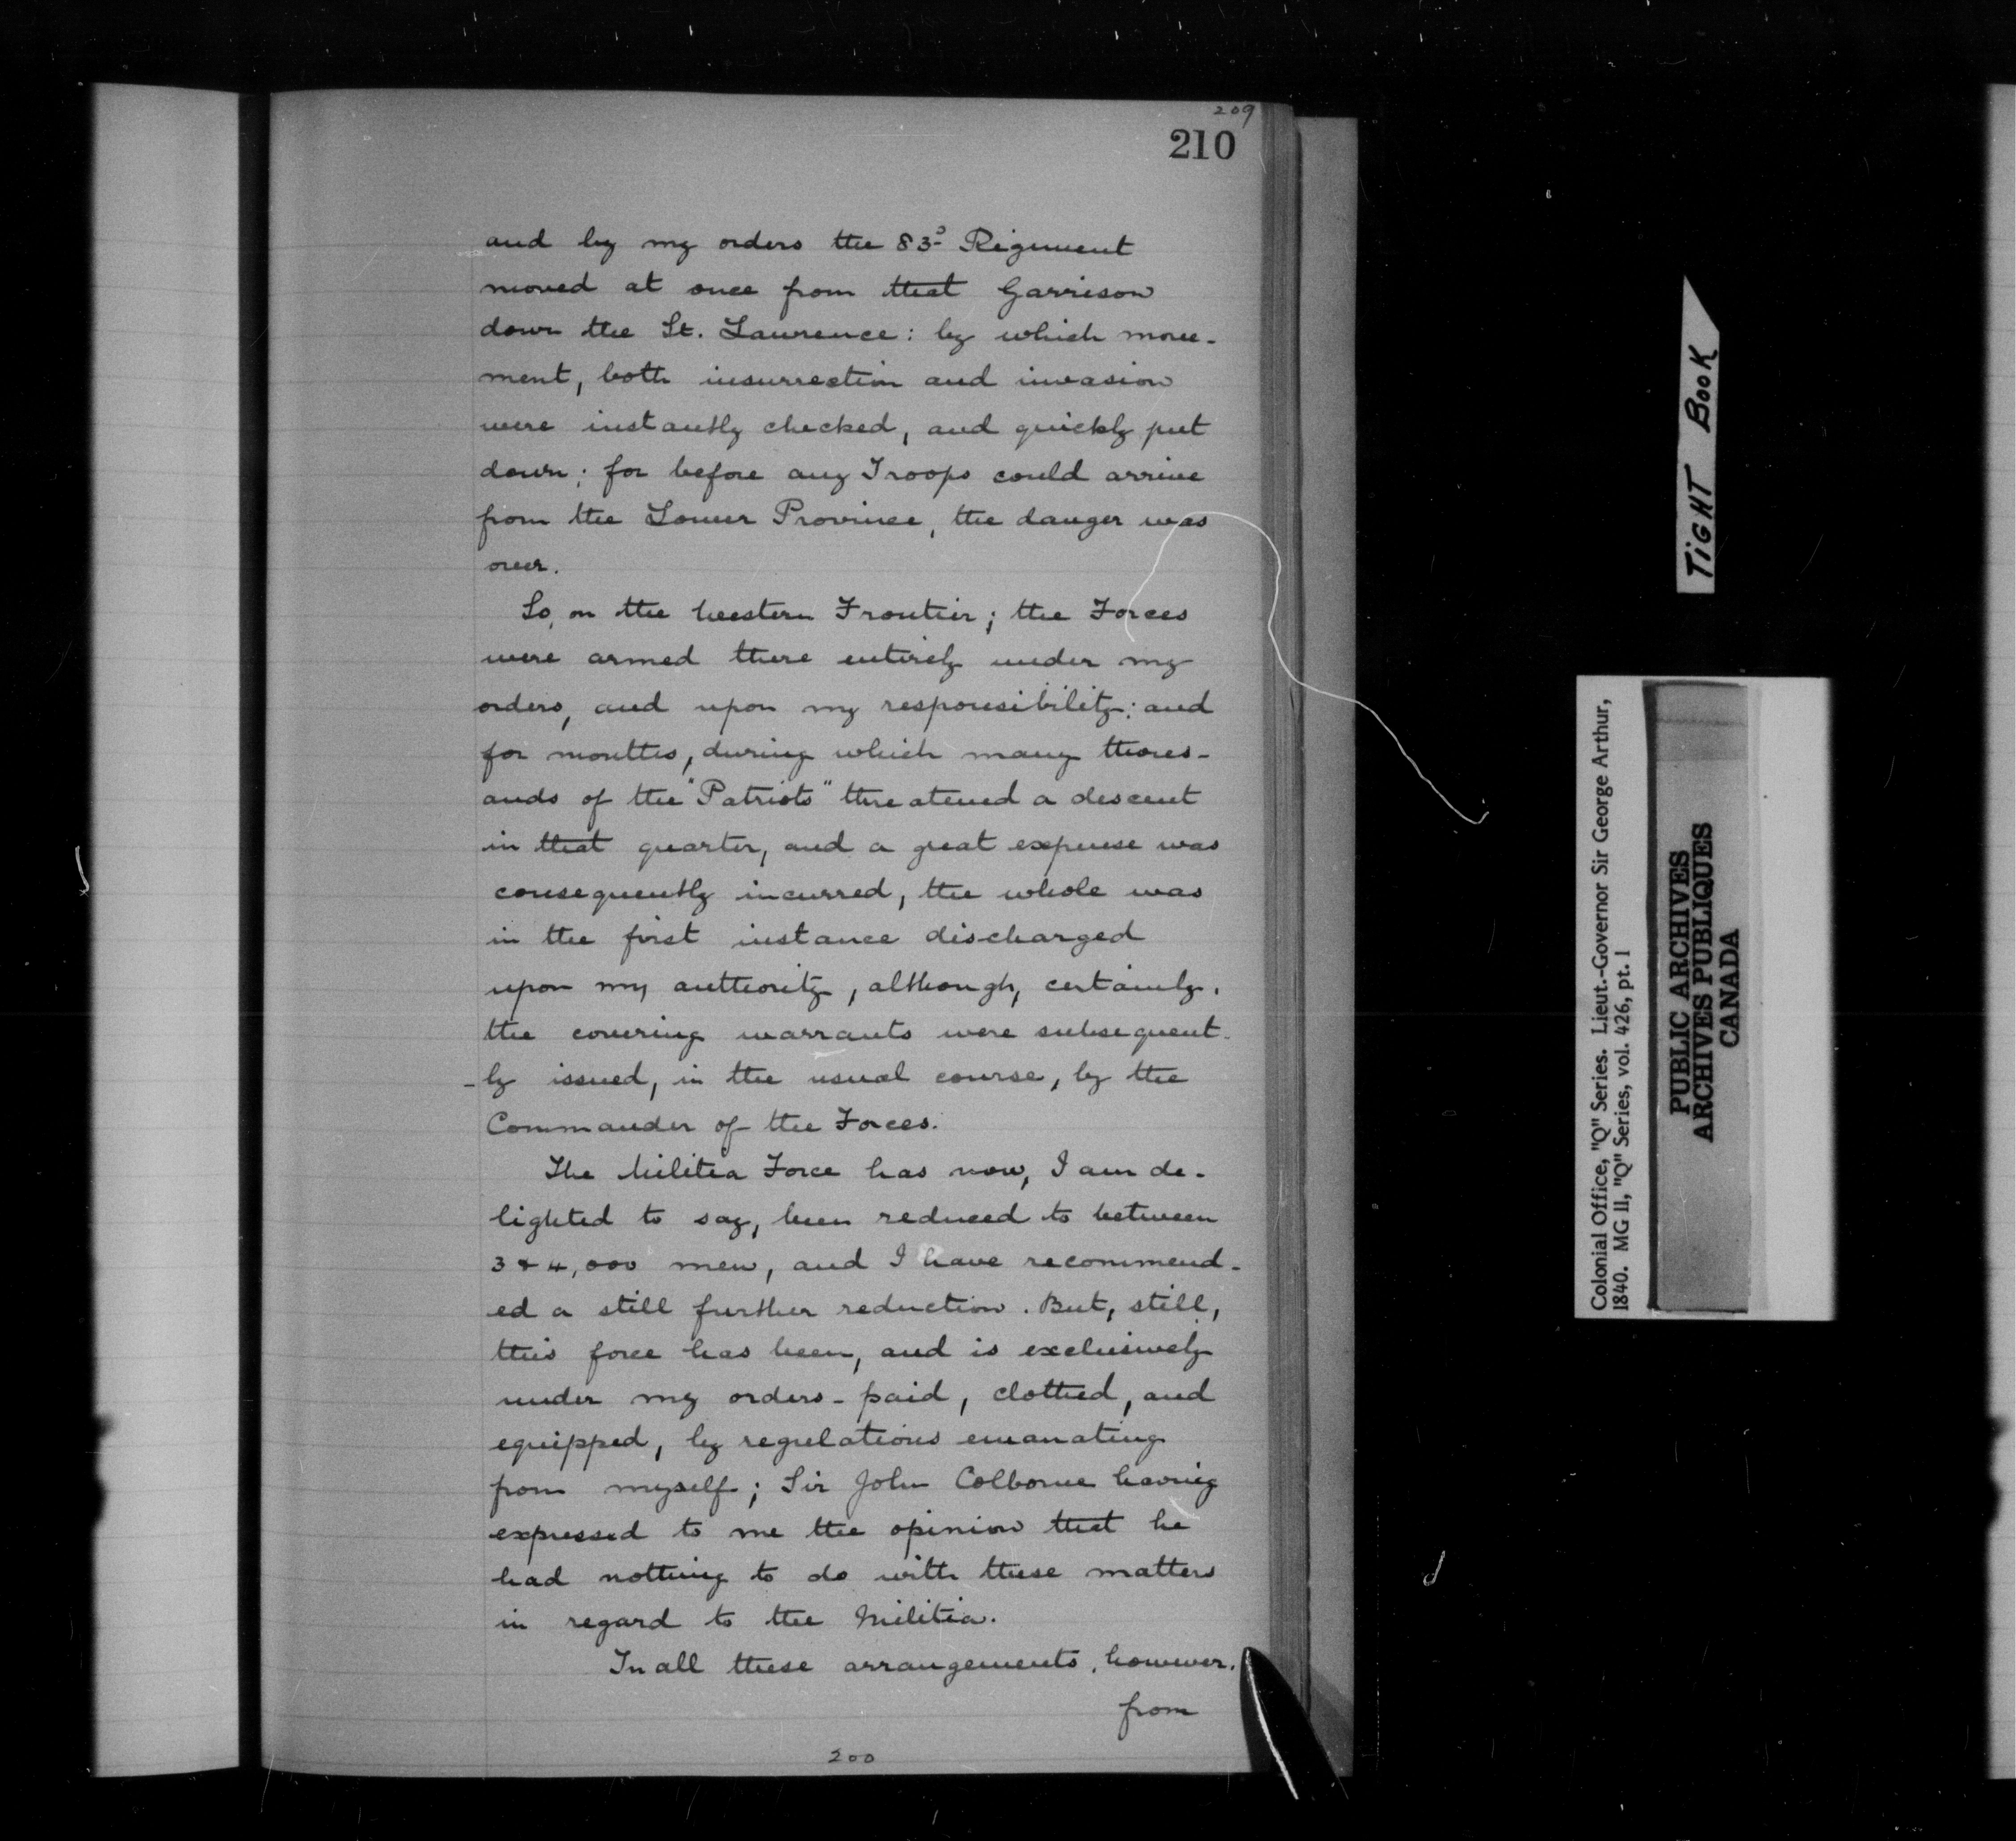 209
210
and by my orders the 83d Regiment
moved at once from that Garrison
down the St. Lawrence: by which move-
ment, both insurrection and invasion
were instantly checked, and quickly put
down; for before any Troops could arrive
from the Lower Province, the danger was
over.
So, on the Western Frontier; the Forces
were armed there entirely under my
orders, and upon my responsibility: and
for months, during which many thous-
ands of the "Patriots" threatened a descent
in that quarter, and a great expense was
consequently incurred, the whole was
in the first instance discharged
upon my authority, although, certainly,
the covering warrants were subsequent-
-ly issued, in the usual course, by the
Commander of the Forces.
The Militia Force has now, I am de-
lighted to say, been reduced to between
3 & 4,000 men, and I have recommend-
ed a still further reduction. But, still,
this force has been, and is exclusively
under my orders - paid, clothed, and
equipped, by regulations emanating
from myself; Sir John Colborne having
expressed to me the opinion that he
had nothing to do with these matters
in regard to the Militia.
In all these arrangements, however,
from
200
TIGHT BOOK
Colonial Office, "Q" Series. Lieut.-Governor Sir George Arthur,
1840. MG 11, "Q" Series, vol. 426, pt. 1
PUBLIC ARCHIVES
ARCHIVES PUBLIQUES
CANADA